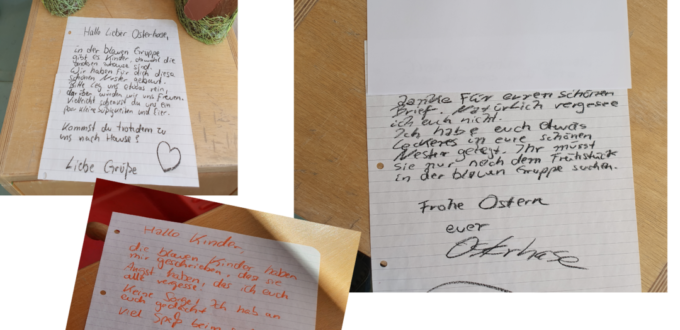 Hallo Lieber Osterhase,
in der blauen Gruppe
gibt es Kinder, obwohl die
Großen Zuhause sind.
Wir haben für dich diese
schönen Nester gebaut.
Bitte leg uns etwas rein,
darüber würden wir uns freuen.
Vielleicht schenkst du uns ein
paar kleinigkeiten und Eier.
Kommst du trotzdem zu
uns nach Hause?
Liebe Grüße
danke für euren schönen
Brief. Natürlich vergesse
ich euch nicht.
Ich habe euch etwas
Leckeres in eure schönen
Nester gelegt. Ihr müsst
sie nur noch dem Frühstück
in der blauen Gruppe suchen.
Frohe Ostern
euer
Osterhase
Hallo Kinder,
die blauen Kinder haben
mir geschrieben, das sie
Angst haben, das ich euch
alle vergesse.
Keine Sorge! Ich hab an
euch gedacht
Viel Spaß beim